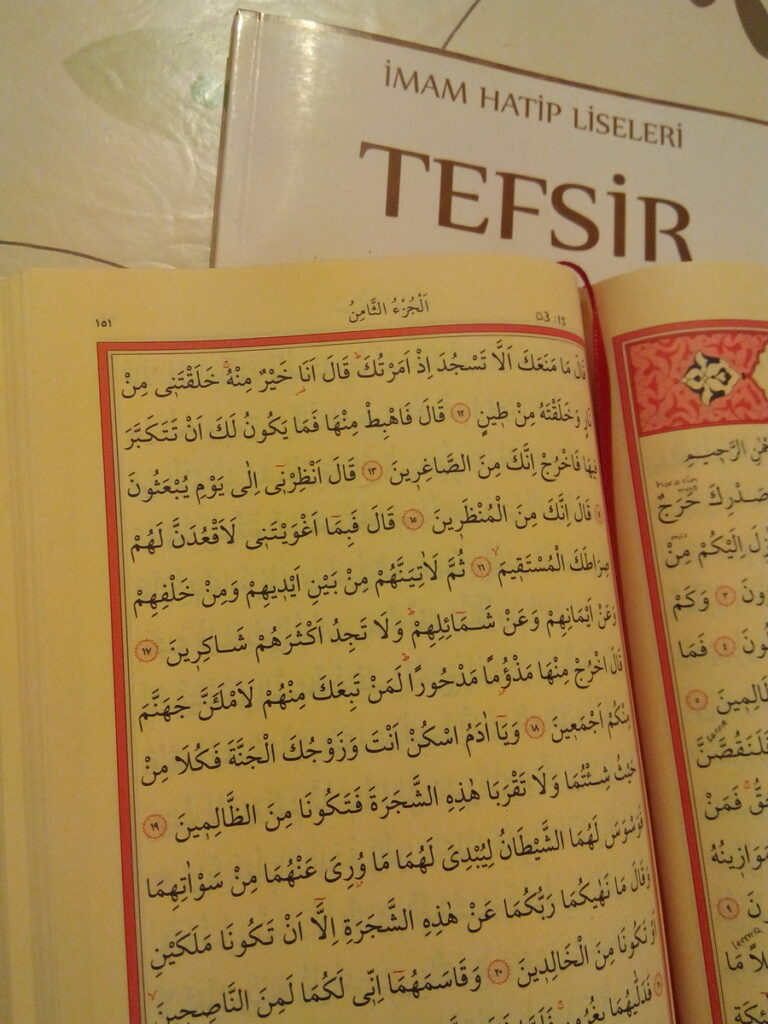 İMAM HATİP LİSELERİ
TEFSİR
١٥١
اَلْجُزْءُ الثَّامِنُ
03:15
قَالَ مَا مَنَعَكَ اَلَّا تَسْجُدَ اِذْ اَمَرْتُكَ قَالَ اَنَا خَيْرٌ مِنْهُ خَلَقْتَنٖى مِنْ
نَارٍ وَخَلَقْتَهُ مِنْ طٖينٍ ١٢ قَالَ فَاهْبِطْ مِنْهَا فَمَا يَكُونُ لَكَ اَنْ تَتَكَبَّرَ
فٖيهَا فَاخْرُجْ اِنَّكَ مِنَ الصَّاغِرٖينَ ١٣ قَالَ اَنْظِرْنٖى اِلٰى يَوْمِ يُبْعَثُونَ
قَالَ اِنَّكَ مِنَ الْمُنْظَرٖينَ ١٥ قَالَ فَبِمَا اَغْوَيْتَنٖى لَاَقْعُدَنَّ لَهُمْ
صِرَاطَكَ الْمُسْتَقٖيمَ ١٦ ثُمَّ لَاٰتِيَنَّهُمْ مِنْ بَيْنِ اَيْدٖيهِمْ وَمِنْ خَلْفِهِمْ
وَعَنْ اَيْمَانِهِمْ وَعَنْ شَمَائِلِهِمْ وَلَا تَجِدُ اَكْثَرَهُمْ شَاكِرٖينَ ١٧
قَالَ اخْرُجْ مِنْهَا مَذْؤُمًا مَدْحُورًا لَمَنْ تَبِعَكَ مِنْهُمْ لَاَمْلَئَنَّ جَهَنَّمَ
مِنْكُمْ اَجْمَعٖينَ ١٨ وَيَا اٰدَمُ اسْكُنْ اَنْتَ وَزَوْجُكَ الْجَنَّةَ فَكُلَا مِنْ
حَيْثُ شِئْتُمَا وَلَا تَقْرَبَا هٰذِهِ الشَّجَرَةَ فَتَكُونَا مِنَ الظَّالِمٖينَ ١٩
فَوَسْوَسَ لَهُمَا الشَّيْطَانُ لِيُبْدِىَ لَهُمَا مَا وُرِىَ عَنْهُمَا مِنْ سَوْاٰتِهِمَا
وَقَالَ مَا نَهٰيكُمَا رَبُّكُمَا عَنْ هٰذِهِ الشَّجَرَةِ اِلَّا اَنْ تَكُونَا مَلَكَيْنِ
اَوْ تَكُونَا مِنَ الْخَالِدٖينَ ٢٠ وَقَاسَمَهُمَا اِنّٖى لَكُمَا لَمِنَ النَّاصِحٖينَ
فَدَلّٰيهُمَا بِغُرُورٍ
الرَّحٖيمِ
صَدْرِكَ حَرَجٌ
اِلَيْكُمْ مِنْ
٣ وَكَمْ
٤ فَمَا
ظَالِمٖينَ ٥
فَلَنَقُصَّنَّ
فَمَنْ
مَوَازٖينُهُ
٩
مَا